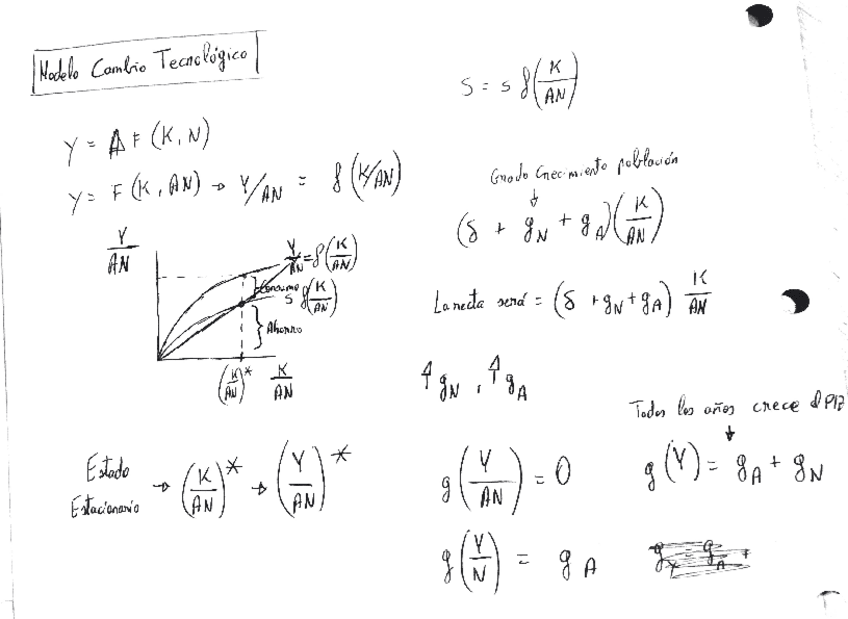 Modelo Cambio Tecnológico
Y = A F (K, N)
Y = F (K, AN) → Y/AN = f (K/AN)
Y/AN
Y/AN = f(K/AN)
Consumo
s f(K/AN)
Ahorro
(K/AN)* K/AN
Estado Estacionario → (K/AN)* → (Y/AN)*
S = s f(K/AN)
Crecimiento población
↓
(δ + gN + gA)(K/AN)
La recta será = (δ + gN + gA) K/AN
↑gN, ↑gA
Todos los años crece el PIB
↓
g(Y/AN) = 0
g(Y) = gA + gN
g(Y/N) = gA